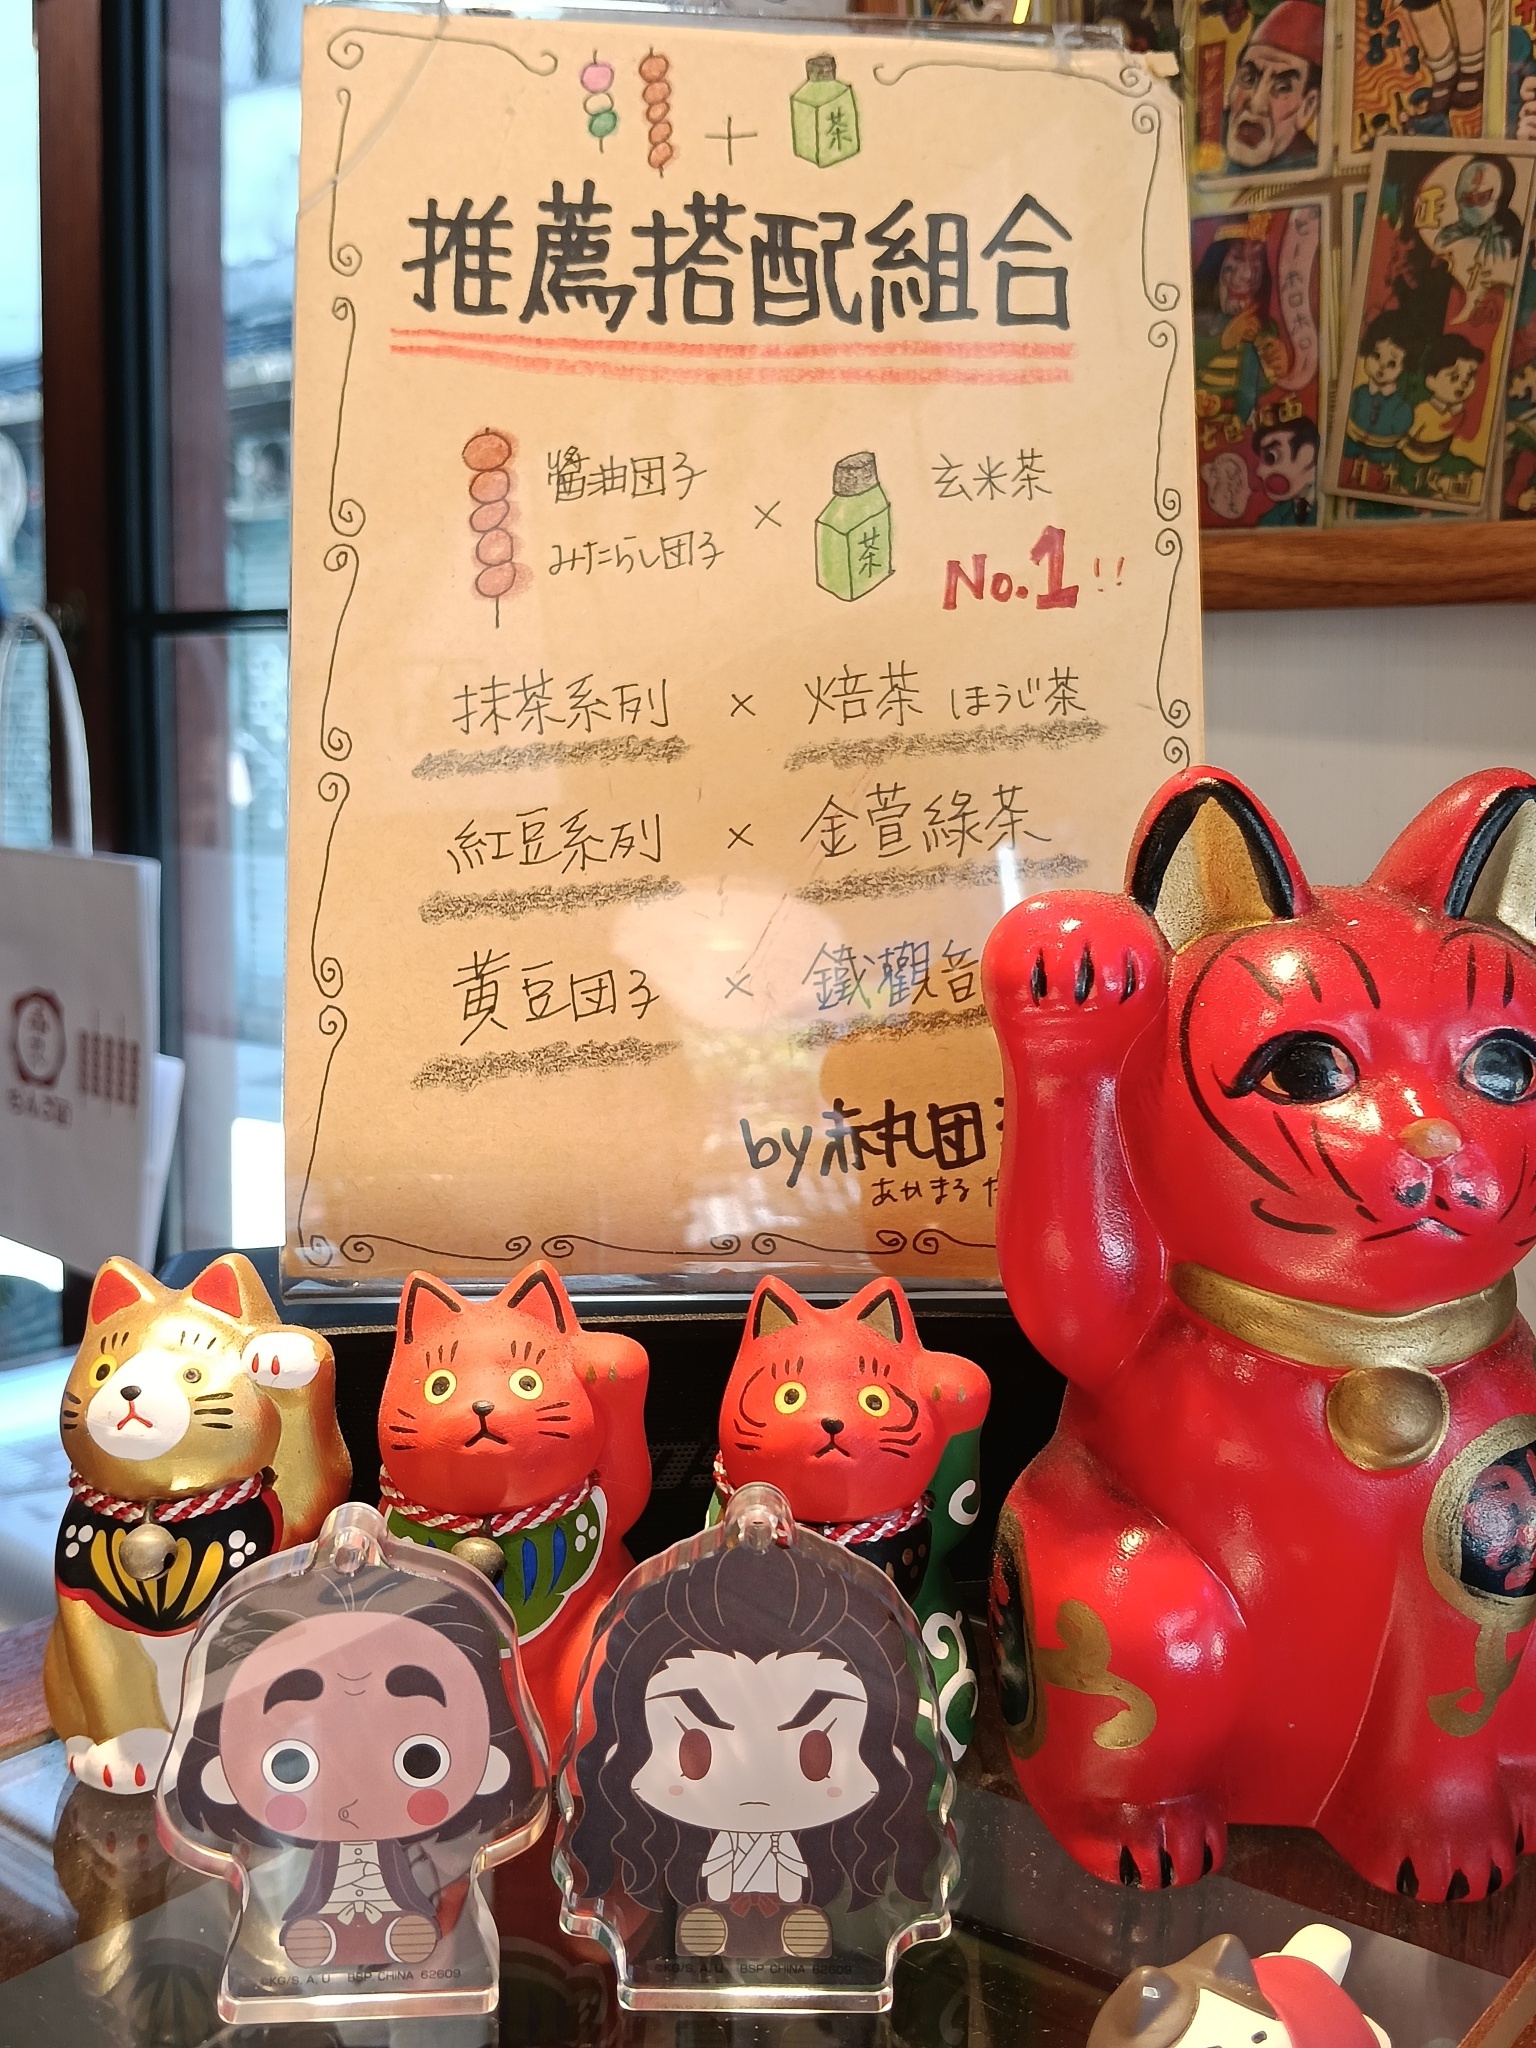 茶
推薦搭配組合
醬油団子 × 玄米茶
みたらし団子
茶
No.1!!
抹茶系列 × 焙茶 ほうじ茶
紅豆系列 × 金萱綠茶
黄豆団子 × 鐵觀音
by 赤丸団
あかまる
©KG/S, A, U BSP CHINA 62609
©KG/S, A, U BSP CHINA 62609